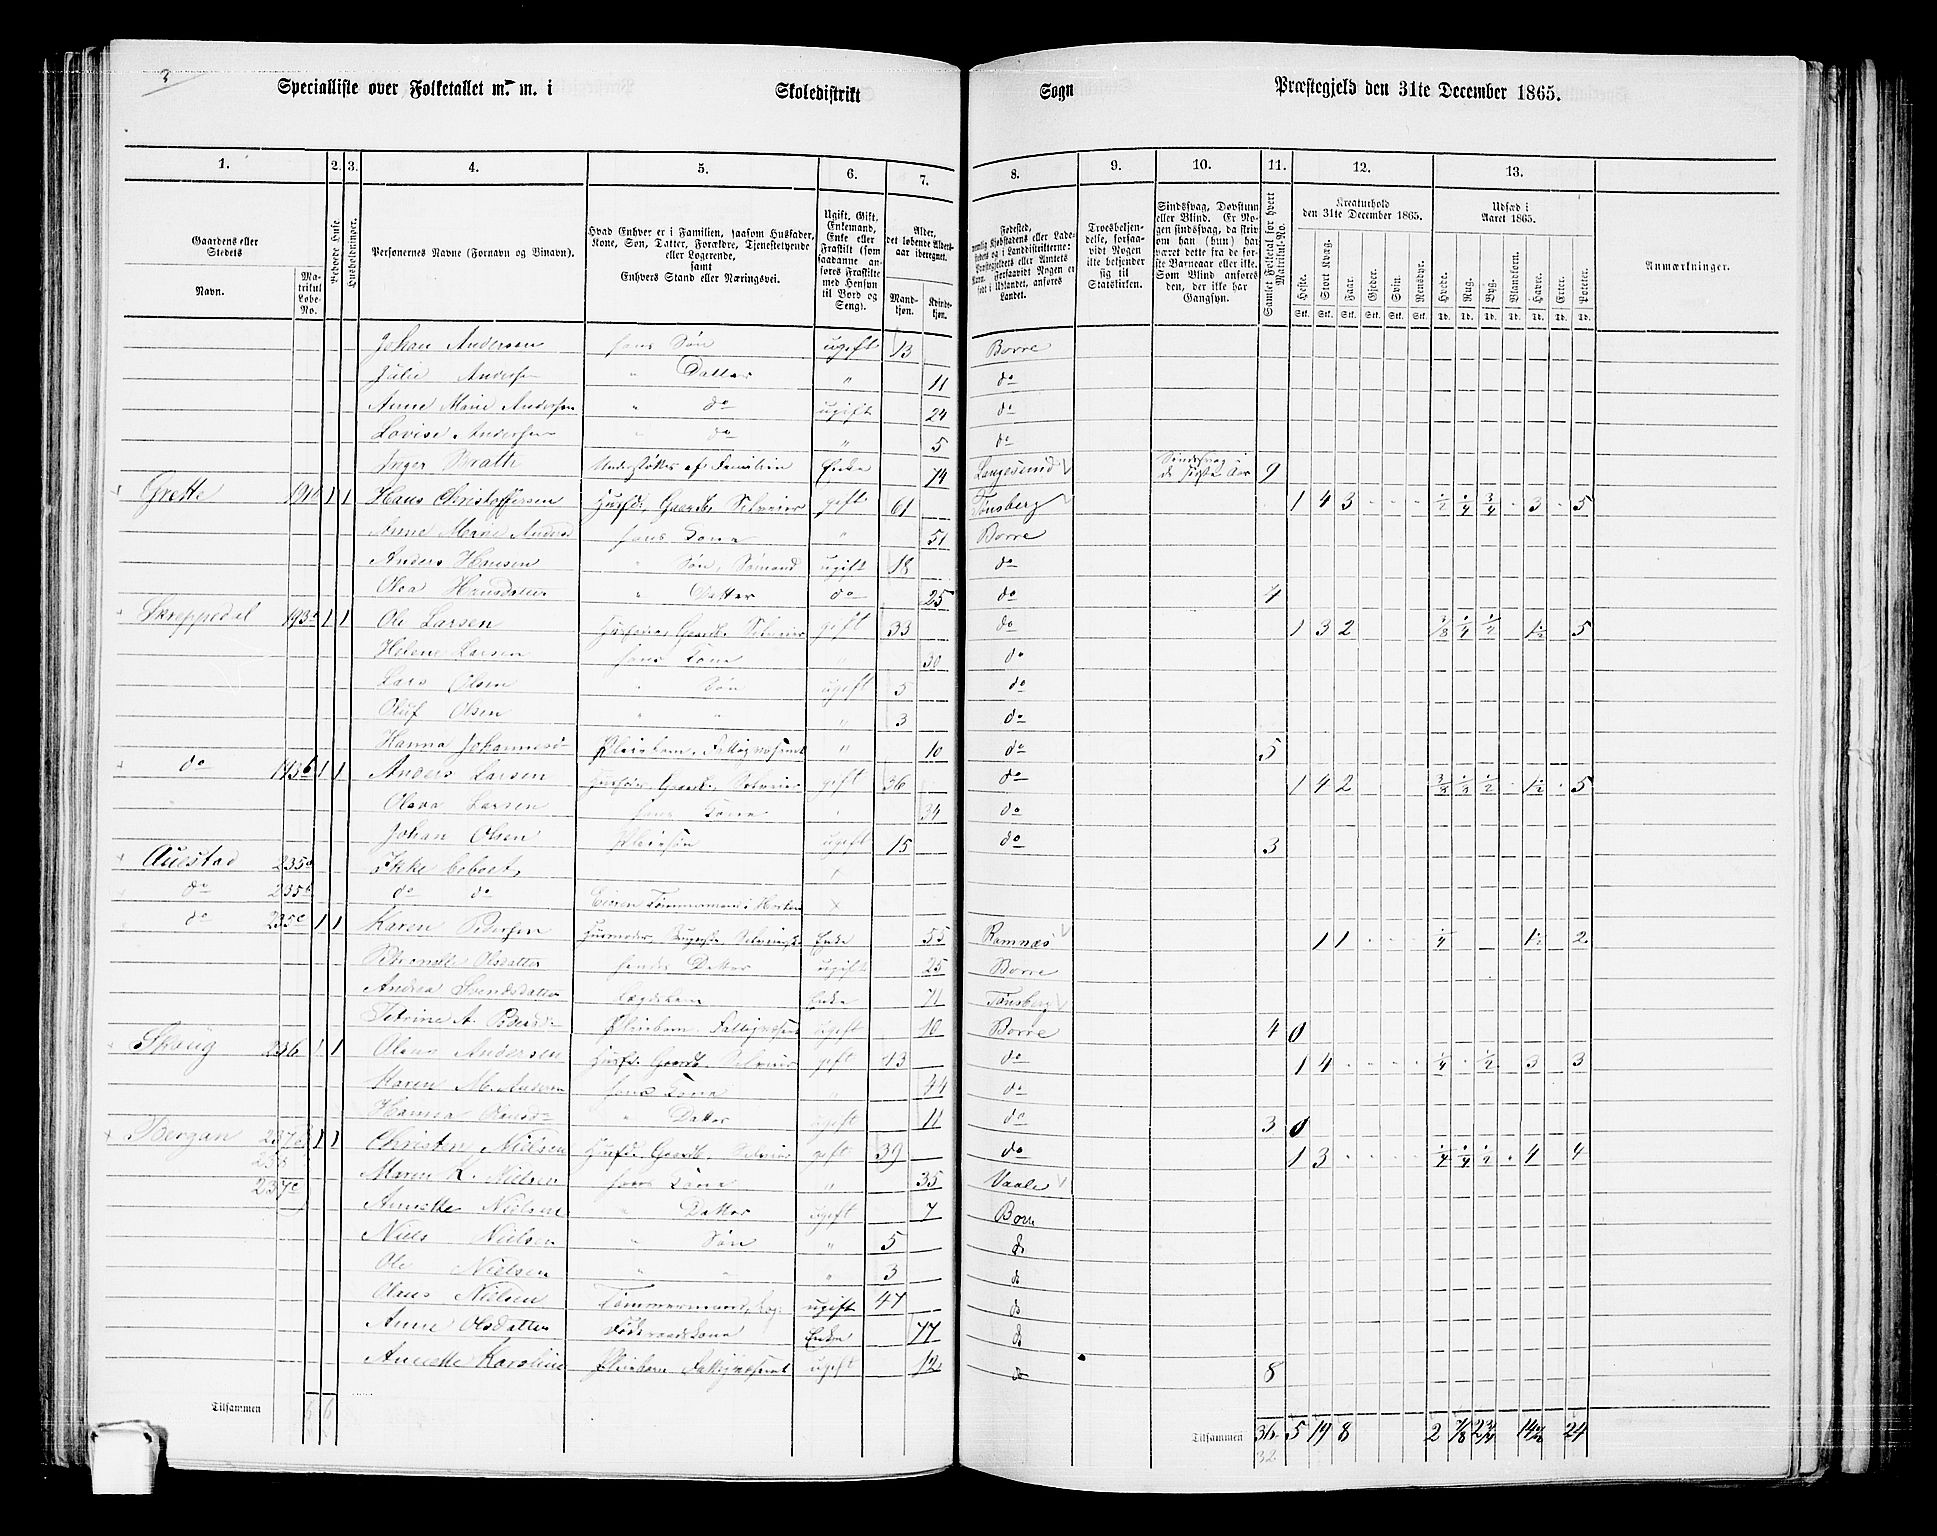 3
Specialliste over Folketallet m. m. i Skoledistrikt Sogn Præstegjeld den 31te December 1865.
1. 2. 3. 4. 5. 6. 7. 8. 9. 10. 11. 12. 13.
Gaardens eller Stedets
Navn.
Matrikul Løbe-No.
Beboede Huse
Husholdninger.
Personernes Navne (Fornavn og Tilnavn).
Hvad Enhver er i Familien, saasom Husfader, Kone, Søn, Datter, Forældre, Tjenestetyende eller Logerende, samt Enhvers Stand eller Næringsvei.
Ugift, Gift, Enkemand, Enke eller Fraskilt (som saadanne anføres Fraskilte med Hensyn til Bord og Seng).
Alder, det løbende Aldersaar iberegnet.
Mandkjøn.
Kvindekjøn.
Troesbekjendelse, forsaavidt Nogen ikke bekjender sig til Statskirken.
Sindssvag, Døvstum eller Blind. Er Nogen sindssvag, da skrives om han (hun) har været dette fra de første Barneaar eller ikke. Som Blind anføres den, der ikke har Gangsyn.
Samlet Folketal for hvert Matrikul-No.
Kreaturhold den 31te December 1865.
Udsæd i Aaret 1865.
Heste. Stort Kvæg. Faar. Gjeder. Svin. Rensdyr. Hvede. Rug. Byg. Blandkorn. Havre. Erter. Poteter.
Anmærkninger.
Johan Andersen hans Søn ugift 13 Borre
Julie Andersen " Datter " 11 do
Anne Marie Andersen " do ugift 24 do
Lovise Andersen " do " 5 do
Inger Enke 74 Langesund 9
Grette 1 1 Hans Christoffersen Husfd. Gaardb. Selveier gift 61 Tønsberg 1 4 3 1/2 1/4 3/4 3 5
Anne Marie hans Kone " 51 Borre
Anders Hansen " Søn, Sømand ugift 18 do
Olva Hansdatter " Datter do 25 do 4
Skreppedal 193a 1 1 Ole Larsen Husfader, Gaardb. Selveier gift 33 do 1 3 2 1/8 1/4 1/2 1 1/2 5
Helene Larsen hans Kone " 30 do
Lars Olsen " Søn ugift 5 do
Oluf Olsen " " " 3 do
Hanna Johannesd Pleiebarn, " 10 do 5
do 193b 1 1 Anders Larsen Husfader, Gaardb. Selveier gift 36 do 1 4 2 1/2 1 1/2 5
Olava Larsen hans Kone " 34 do
Johan Olsen Pleiesøn ugift 15 do 3
Auestad 235a Ikke beboet,
do 235b do do Eieren Tømmermand i Horten
do 235c 1 1 Karen Pedersen Husmoder, Enke 55 Ramnæs 1 1 1/4 1 1/2 2
Olsdatter hendes Datter ugift 25 Borre
Andrea Svendsdatter Enke 71 Tønsberg
A. Pleiebarn ugift 10 Borre 4 0
Skoug 236 1 1 Olaus Andersen Husfd. Gaardb. Selveier gift 43 do 1 4 1/4 1/2 3 3
Karen M. Andersen hans Kone " 44 do
Hanna Olausd " Datter ugift 11 do 3 0
Bergan 1 1 Christen Nielsen Husfd. Gaardb. Selveier gift 39 do 1 3 1/4 1/4 1/2 4 4
237c Maren K. Nielsen hans Kone " 35 Vaale
Annette Nielsen " Datter ugift 7 Borre
Niels Nielsen " Søn " 5 do
Ole Nielsen " " " 3 do
Olaus Nielsen Tømmermand, Log. ugift 47 do
Anne Olsdatter Føderaadskone Enke 77 do
Annette Karoline Pleiebarn ugift 12 do 8
Tilsammen 6 6
Tilsammen 36 5 19 8 2 7/8 2 3/4 24
32